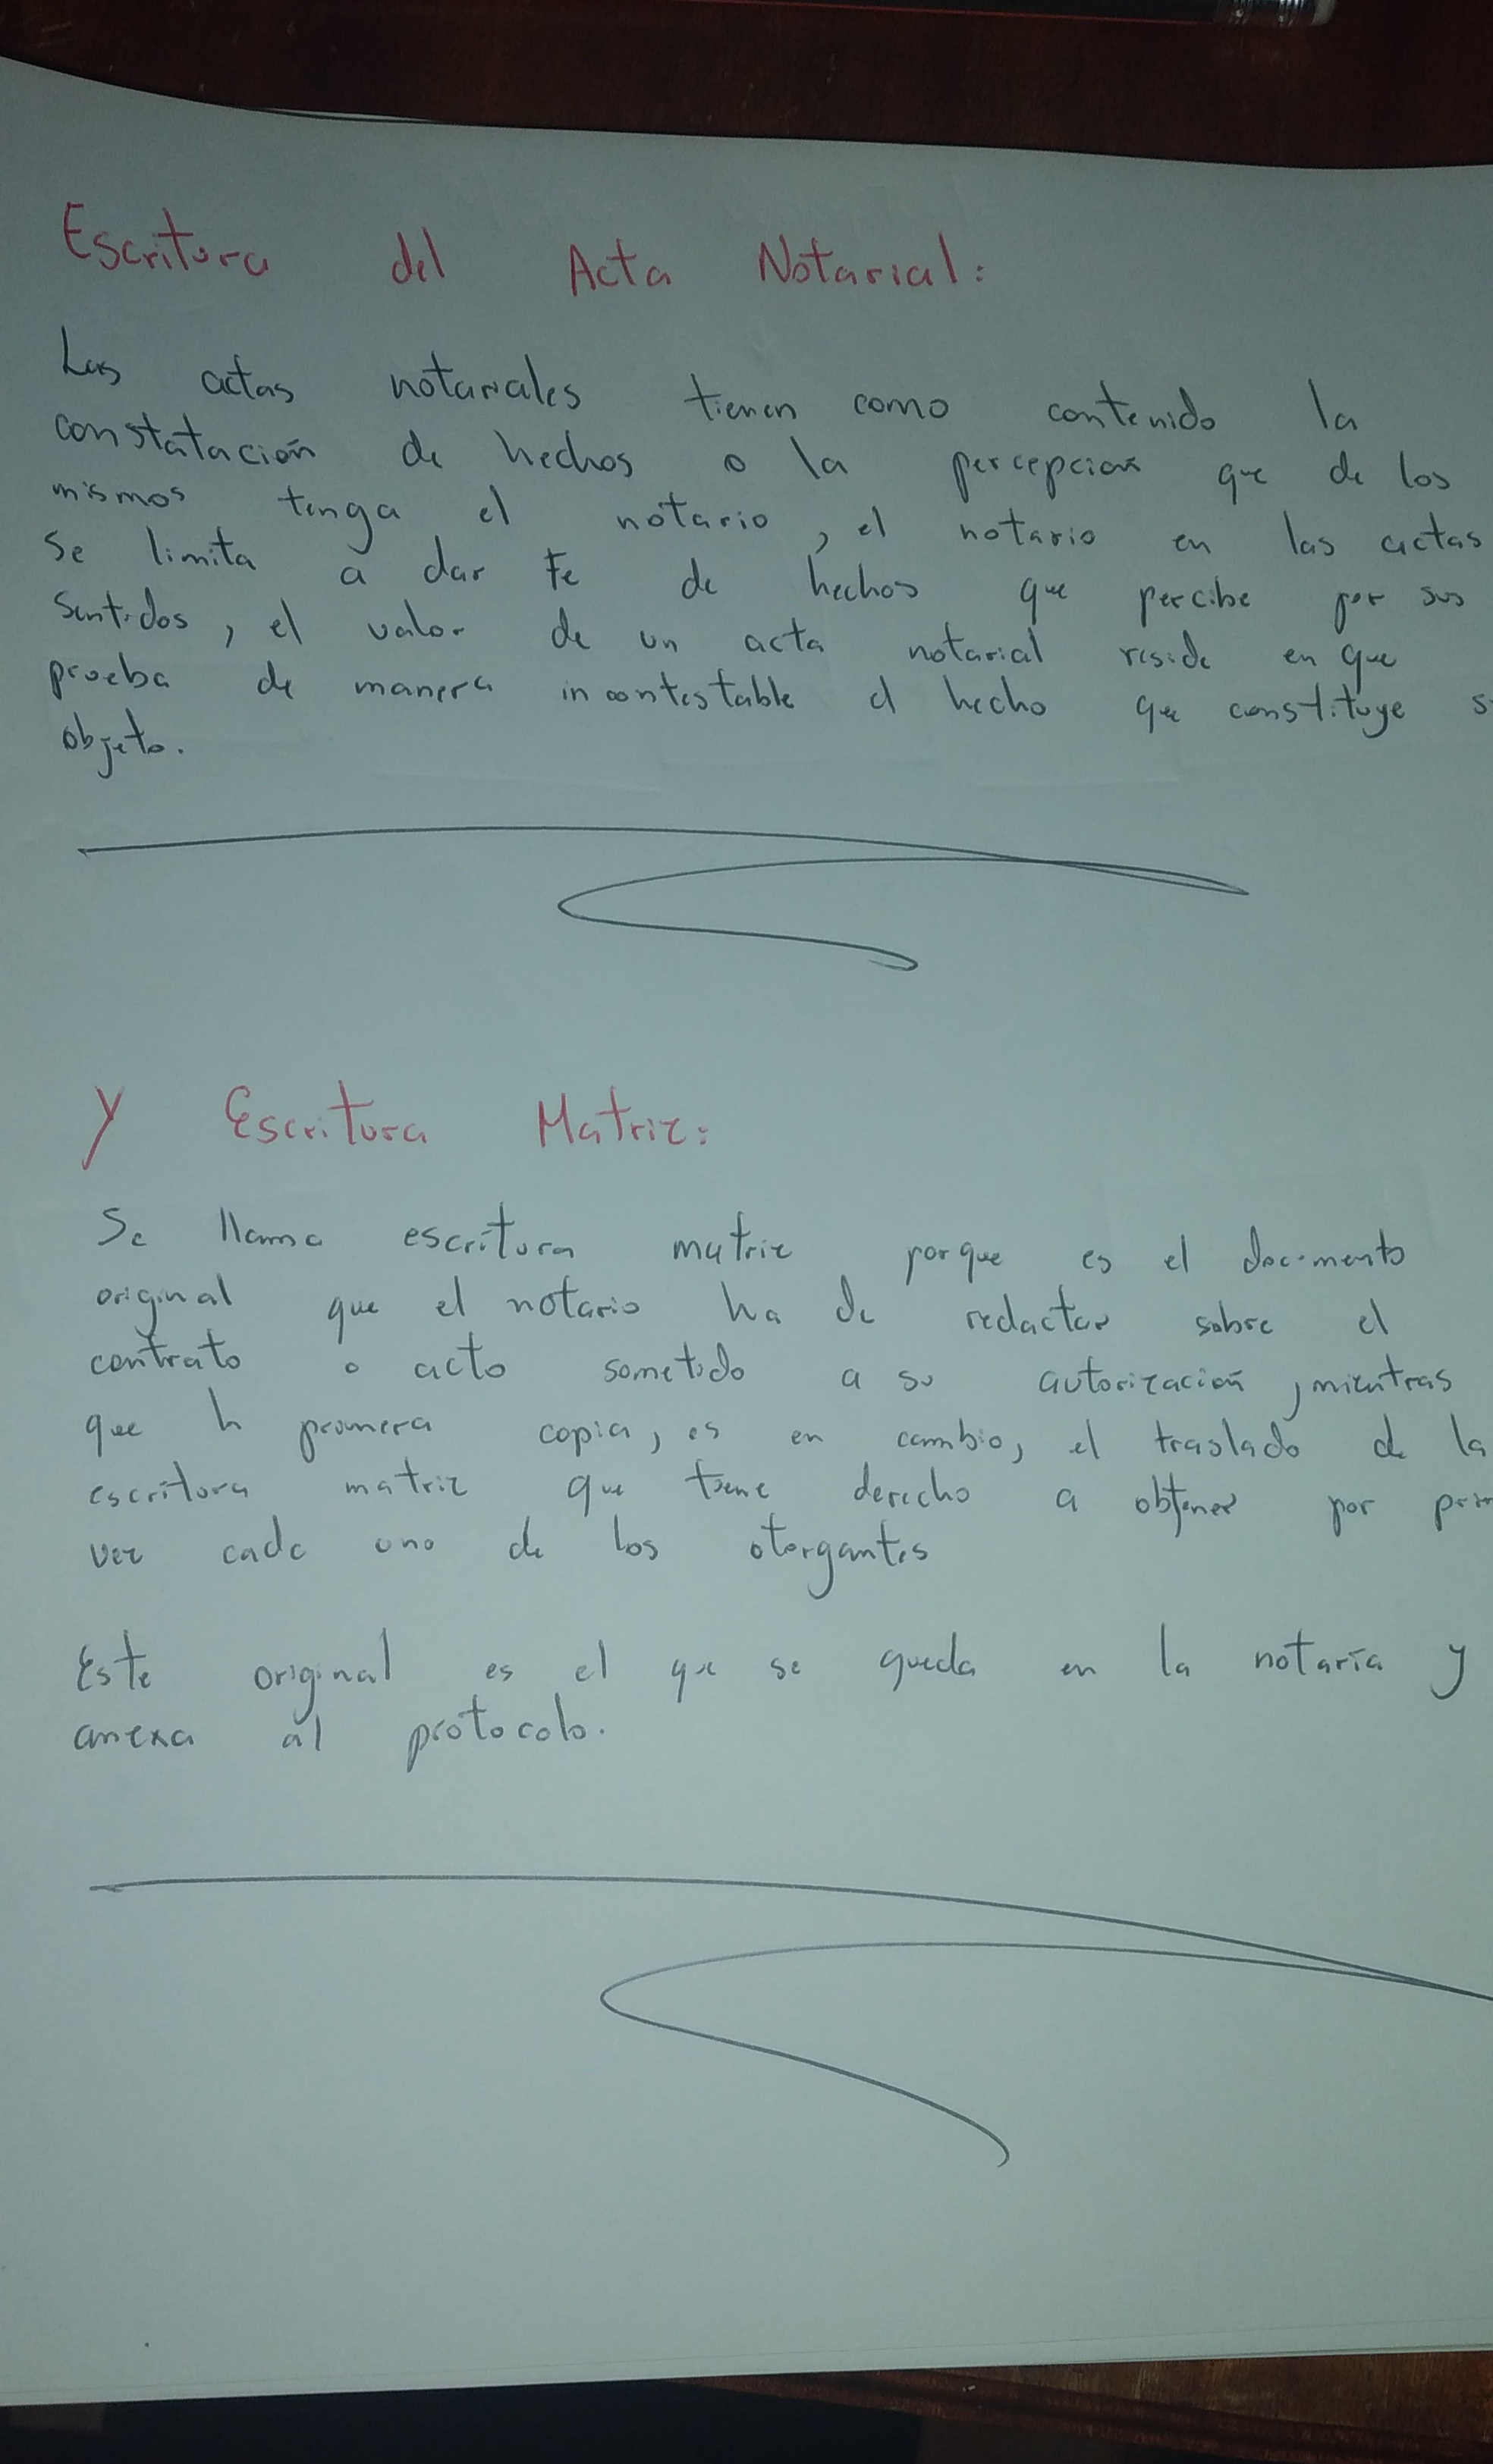 Escritura del Acta Notarial:
Las actas notariales tienen como contenido la
constatación de hechos o la percepción que de los
mismos tenga el notario, el notario en las actas
se limita a dar Fe de hechos que percibe por sus
Sentidos, el valor de un acta notarial reside en que
prueba de manera incontestable el hecho que constituye
objeto.
Y Escritura Matriz:
Se llama escritura matriz porque es el documento
original que el notario ha de redactar sobre el
contrato o acto sometido a su autorización, mientras
que la primera copia, es en cambio, el traslado de la
escritura matriz que tiene derecho a obtener por
vez cada uno de los otorgantes
Este original es el que se queda en la notaría y
anexa al protocolo.